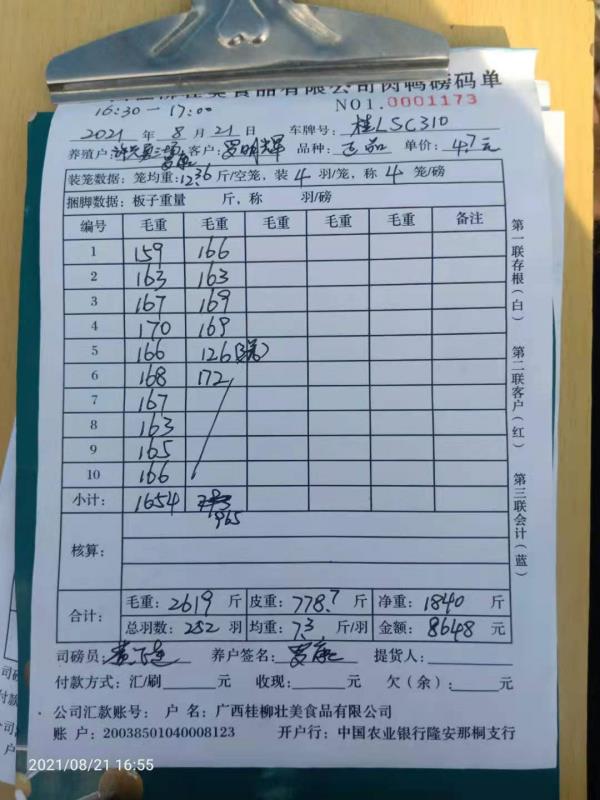 壮美食品有限公司肉鸭磅码单
16:30一17:00
NO1.0001173
2021 年 8 月 21 日 车牌号: 桂LSC310
养殖户: 客户: 罗明辉 品种: 正品 单价: 4.7元
装笼数据: 笼均重: 12.36 斤/空笼, 装 4 羽/笼, 称 4 笼/磅
捆脚数据: 板子重量 斤, 称 羽/磅
编号 毛重 毛重 毛重 毛重 毛重 备注
1 159 166
2 163 163
3 167 169
4 170 169
5 166 126(3笼)
6 168 172
7 167
8 163
9 165
10 166
小计: 1654 965
核算:
合计: 毛重: 2619 斤 皮重: 778.7 斤 净重: 1840 斤
总羽数: 252 羽 均重: 7.3 斤/羽 金额: 8648 元
司磅员: 养户签名: 提货人:
付款方式: 汇/刷 元 收现: 元 欠(余): 元
公司汇款账号: 户 名: 广西桂柳壮美食品有限公司
账 户: 20038501040008123 开户行: 中国农业银行隆安那桐支行
第一联存根(白) 第二联客户(红) 第三联会计(蓝)
2021/08/21 16:55